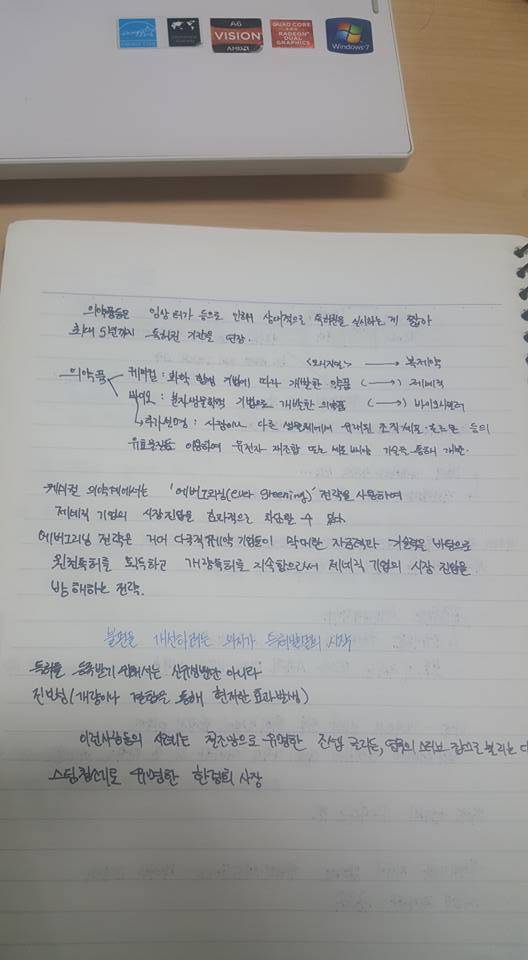 A6
QUAD CORE
VISION
RADEON
DUAL
GRAPHICS
AMD
Windows 7
의약품들은 임상 허가 등으로 인해서 상대적으로 특허권을 실시하는 게 짧아
최대 5년까지 특허권 기간을 연장.
<오리지널> → 복제약
의약품 케미컬 : 화학 합성 기법에 따라 개발한 약품 (→) 제네릭
바이오 : 분자생물학적 기법으로 개발한 의약품 (→) 바이오시밀러
추가설명 : 사람이나 다른 생물체에서 유래된 조직/세포 호르몬 등의
유효물질들 이용하여 유전자 재조합 또는 세포배양 기술을 통해 개발.
케미컬 의약계에서는 '에버그리닝(ever greening)' 전략을 사용하여
제네릭 기업의 시장진입을 효과적으로 차단할 수 있다
에버그리닝 전략은 거대 다국적제약 기업들이 막대한 자금력과 기술력을 바탕으로
원천특허를 획득하고 개량특허를 지속함으로써 제네릭 기업의 시장 진입을
방해하는 전략.
불편을 개선하려는 의지가 특허발명의 시작
특허를 등록받기 위해서는 신규성뿐만 아니라
진보성(개량이나 결합을 통해 현저한 효과발생)
이런사람들의 사례는 철조망으로 유명한 조셉 글리든, 의 스티브 잡스로 불리는
스팀청소기로 유명한 한경희 사장